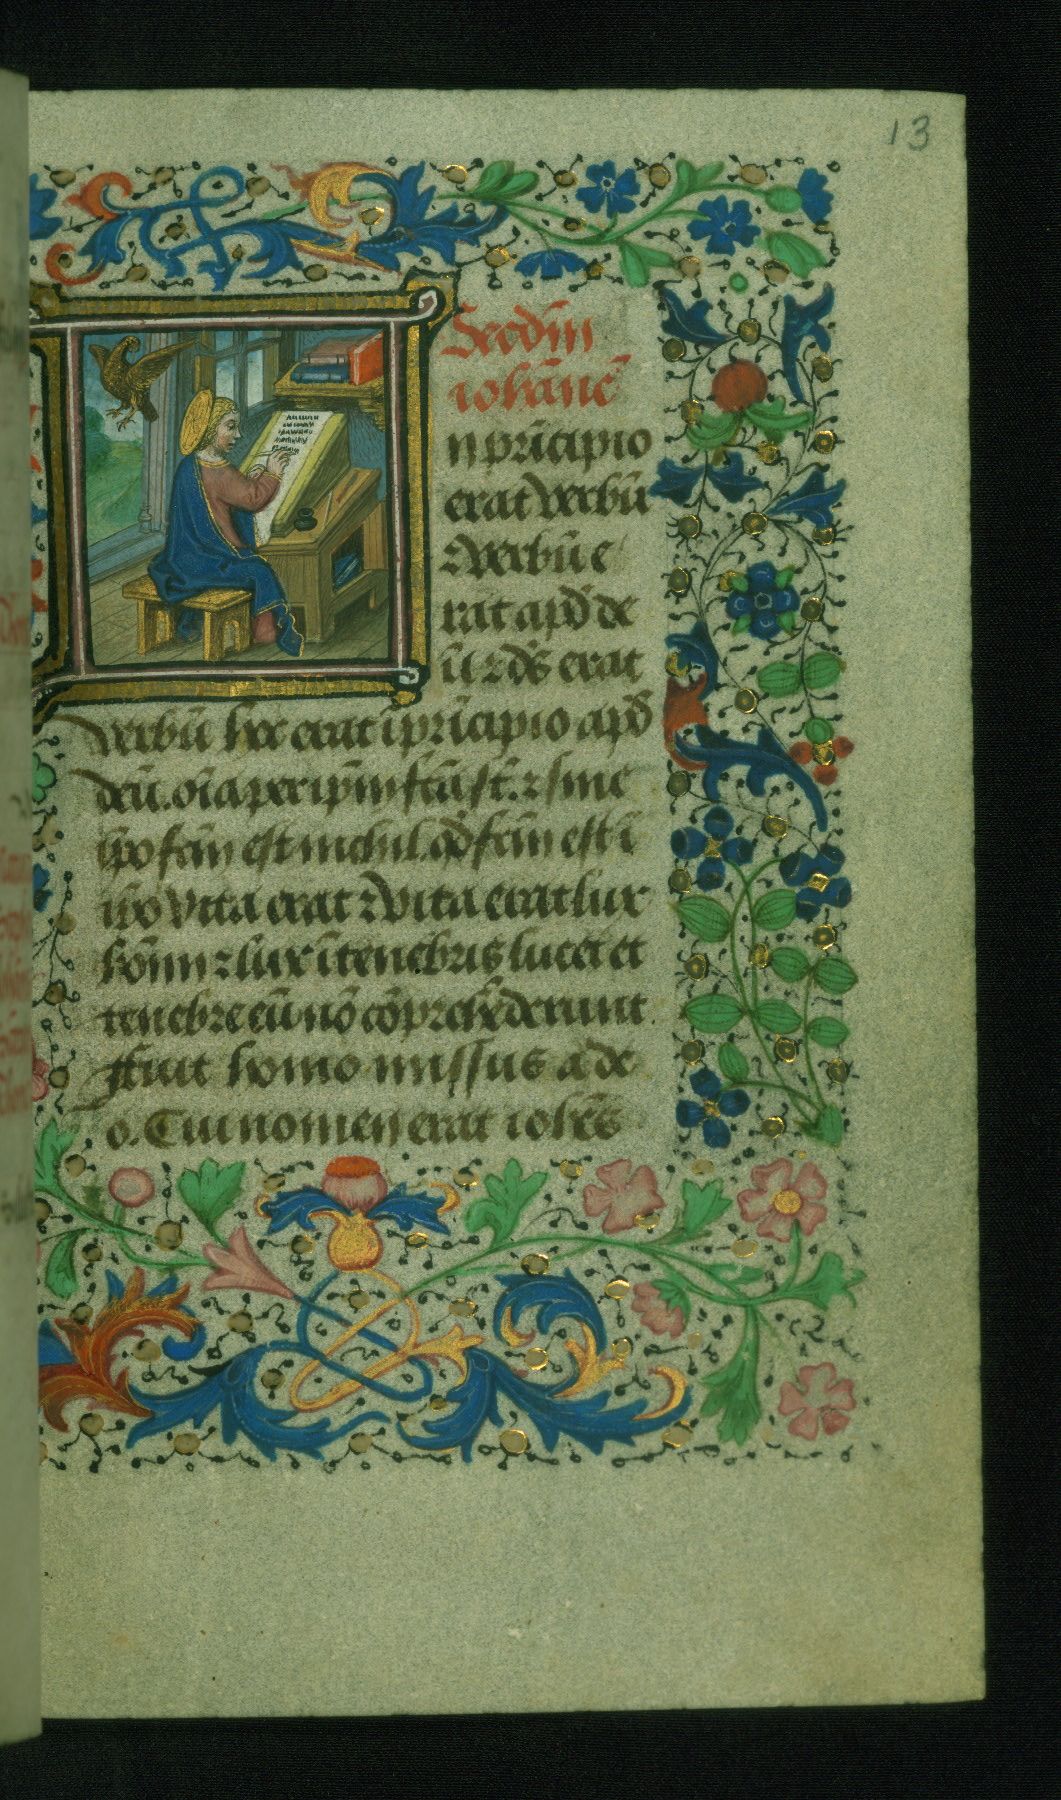 13
Secdm̄
iohāne
n prīcipio
erat verbū
⁊ verbū e
rat apd̄ de
ū ⁊ ds̄ erat
verbū hoc erat ī prīcipio apd̄
deū. oīa per ip̄m fc̄a st̄. ⁊ sine
ip̄o fc̄m est nichil. qd̄ fc̄m est ī
ip̄o vita erat ⁊ vita erat lux
hoīm ⁊ lux ī tenebris lucet et
tenebre eū nō cōprehēderunt.
ffuit homo missus a de
o. Cui nomen erat iohēs